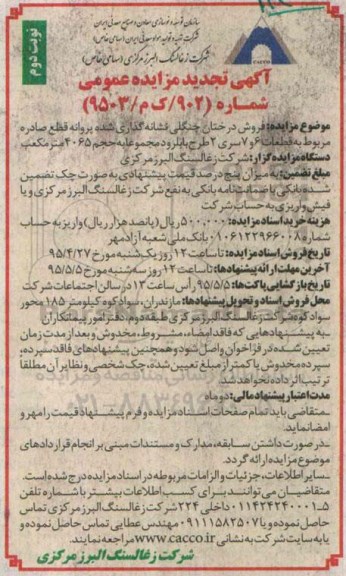 سازمان توسعه و نوسازی معادن و صنایع معدنی ایران
شرکت تهیه و تولید مواد معدنی ایران (سهامی خاص)
شرکت زغالسنگ البرز مرکزی (سهامی خاص)
نوبت دوم
CACCO
آگهی تجدید مزایده عمومی
شماره (۹۰۲/ک م/۹۵۰۳)
موضوع مزایده: فروش درختان جنگلی نشانه گذاری شده پروانه قطع صادره
مربوط به قطعات ۶ و ۷ سری ۲ طرح بابلرود مجموعا به حجم ۴۰۶۵ مترمکعب
دستگاه مزایده گزار: شرکت زغالسنگ البرز مرکزی
مبلغ تضمین: به میزان پنج درصد قیمت پیشنهادی به صورت چک تضمین
شده بانکی یا ضمانتنامه بانکی به نفع شرکت زغالسنگ البرز مرکزی و یا
فیش واریزی به حساب شرکت
هزینه خرید اسناد مزایده: ۵۰۰،۰۰۰ ریال (پانصد هزار ریال) واریز به حساب
شماره ۰۱۰۶۱۲۲۹۶۶۰۰۸ بانک ملی شعبه آزادمهر
تاریخ فروش اسناد مزایده: تا ساعت ۱۲ روز یکشنبه مورخ ۹۵/۴/۲۷
آخرین مهلت ارائه پیشنهادها: تا ساعت ۱۲ روز سه شنبه مورخ ۹۵/۵/۵
تاریخ بازگشایی پاکت ها: ۹۵/۵/۵ رأس ساعت ۱۳ در سالن اجتماعات شرکت
محل فروش اسناد و تحویل پیشنهادها: مازندران، سوادکوه کیلومتر ۱۸۵ محور
سوادکوه شرکت زغالسنگ البرز مرکزی طبقه دوم، دفتر امور پیمانکاران
ـ به پیشنهادهایی که فاقد امضاء، مشروط، مخدوش و بعد از مدت زمان
تعیین شده در فراخوان واصل شود و همچنین پیشنهادهای فاقد سپرده،
سپرده مخدوش یا کمتر از مبلغ تعیین شده، چک شخصی و نظایر آن مطلقا
ترتیب اثر داده نخواهد شد.
مدت اعتبار پیشنهاد مالی: دو ماه
ـ متقاضی باید تمام صفحات اسناد مزایده و فرم پیشنهاد قیمت را مهر و
امضا نماید.
ـ در صورت داشتن سابقه، مدارک و مستندات مبنی بر انجام قراردادهای
موضوع مزایده ارائه گردد.
ـ سایر اطلاعات، جزئیات و الزامات مربوطه در اسناد مزایده درج شده است.
متقاضیان می توانند برای کسب اطلاعات بیشتر با شماره تلفن
۵-۰۱۱۴۲۴۲۴۰۰۰۱ داخلی ۲۲۴ شرکت زغالسنگ البرز مرکزی تماس
حاصل نموده و یا ۰۹۱۱۱۵۸۲۵۰۷ مهندس عطایی تماس حاصل نموده و
یا به سایت شرکت به نشانی www.cacco.ir مراجعه نمایند.
شرکت زغالسنگ البرز مرکزی